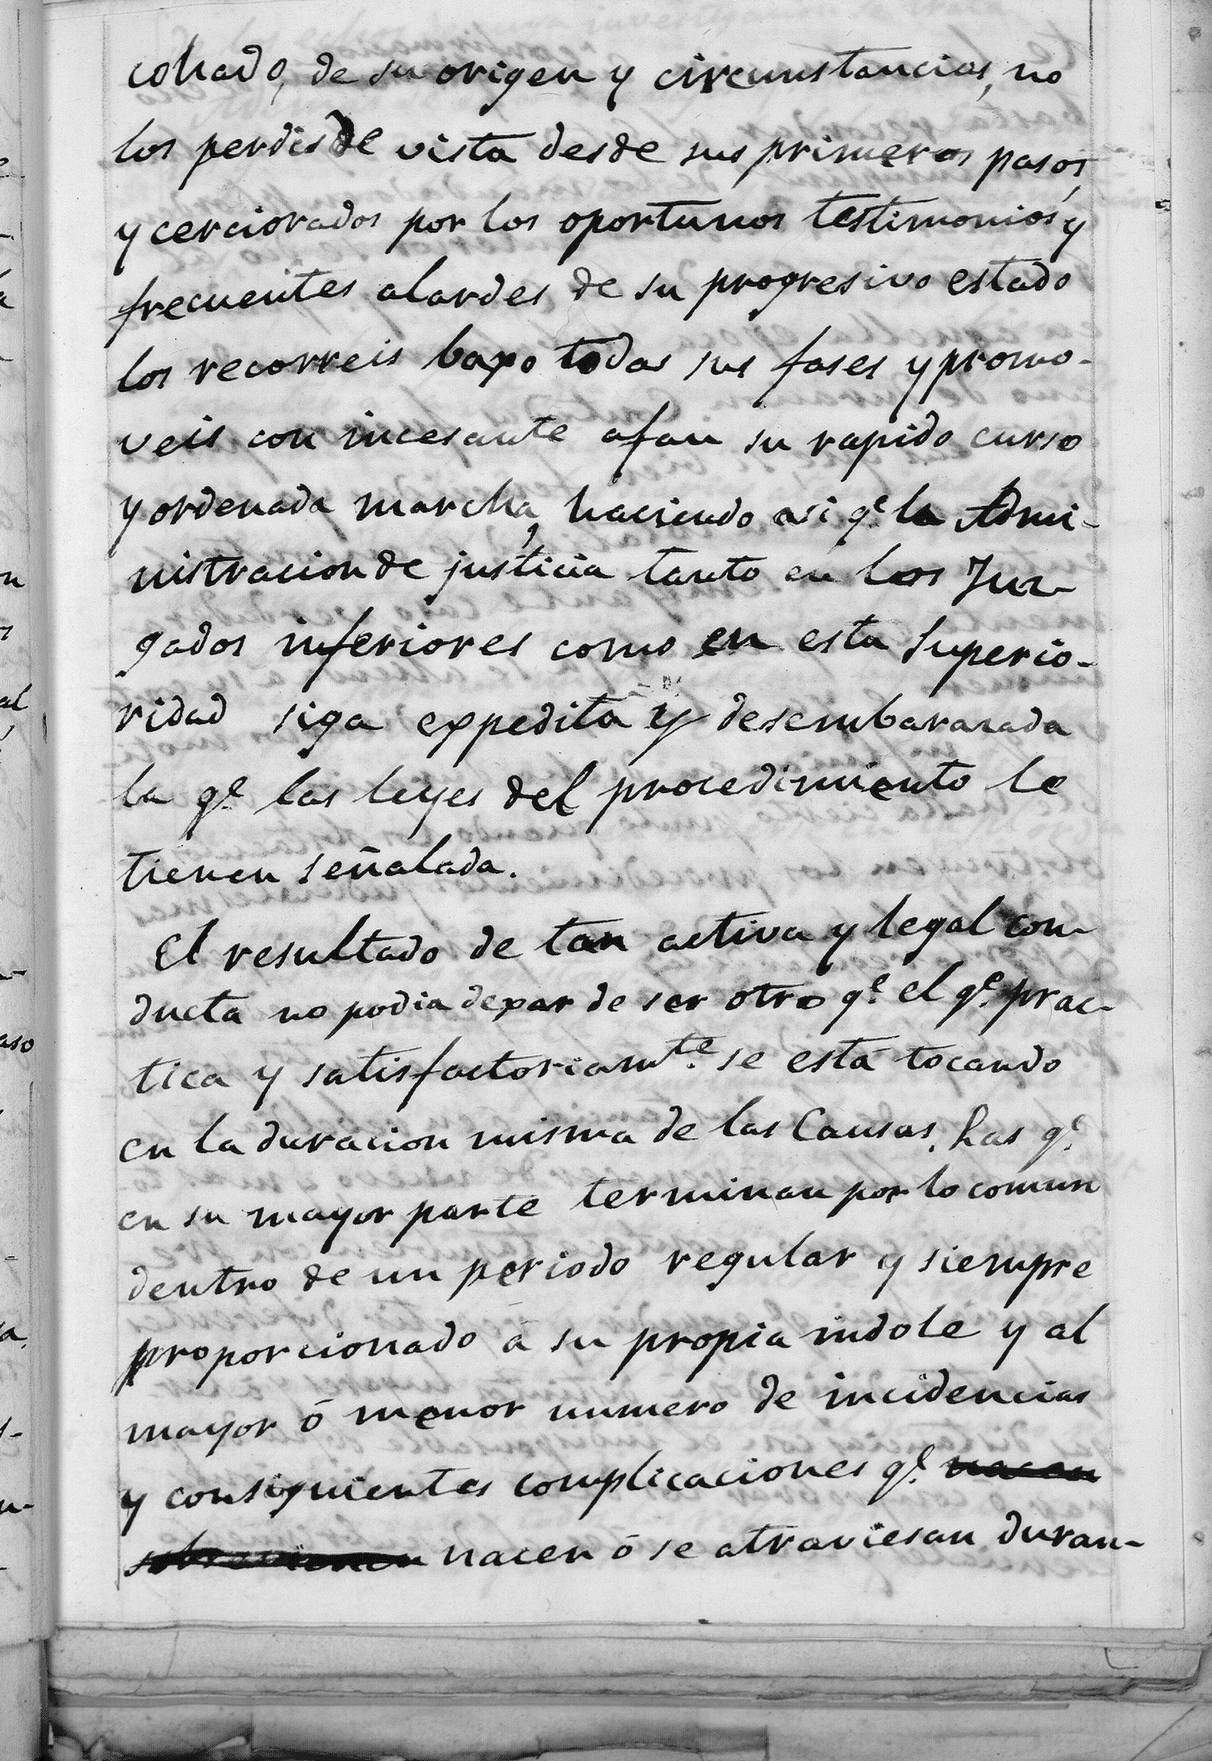 cohado, de su origen y circunstancias, no
los perdis de vista desde sus primeros pasos,
y cerciorados por los oportunos testimonios y
frecuentes alardes de su progresivo estado
los recorreis baxo todas sus fases y promo-
veis con incesante afan su rapido curso
y ordenada marcha, haciendo asi q.e la Admi-
nistracion de justicia tanto en los Juz-
gados inferiores como en esta Superio-
ridad siga expedita y desembarazada
la q.e las leyes del procedimiento le
tienen señalada.
El resultado de tan activa y legal con-
ducta no podia dexar de ser otro q.e el q.e prac-
tica y satisfactoriam.te se está tocando
en la duracion misma de las Causas. Las q.e
en su mayor parte terminan por lo comun
dentro de un periodo regular y siempre
proporcionado á su propia indole y al
mayor ó menor numero de incidencias
y consiguientes complicaciones q.e nacen
sobrevienen nacen ó se atraviesan duran-